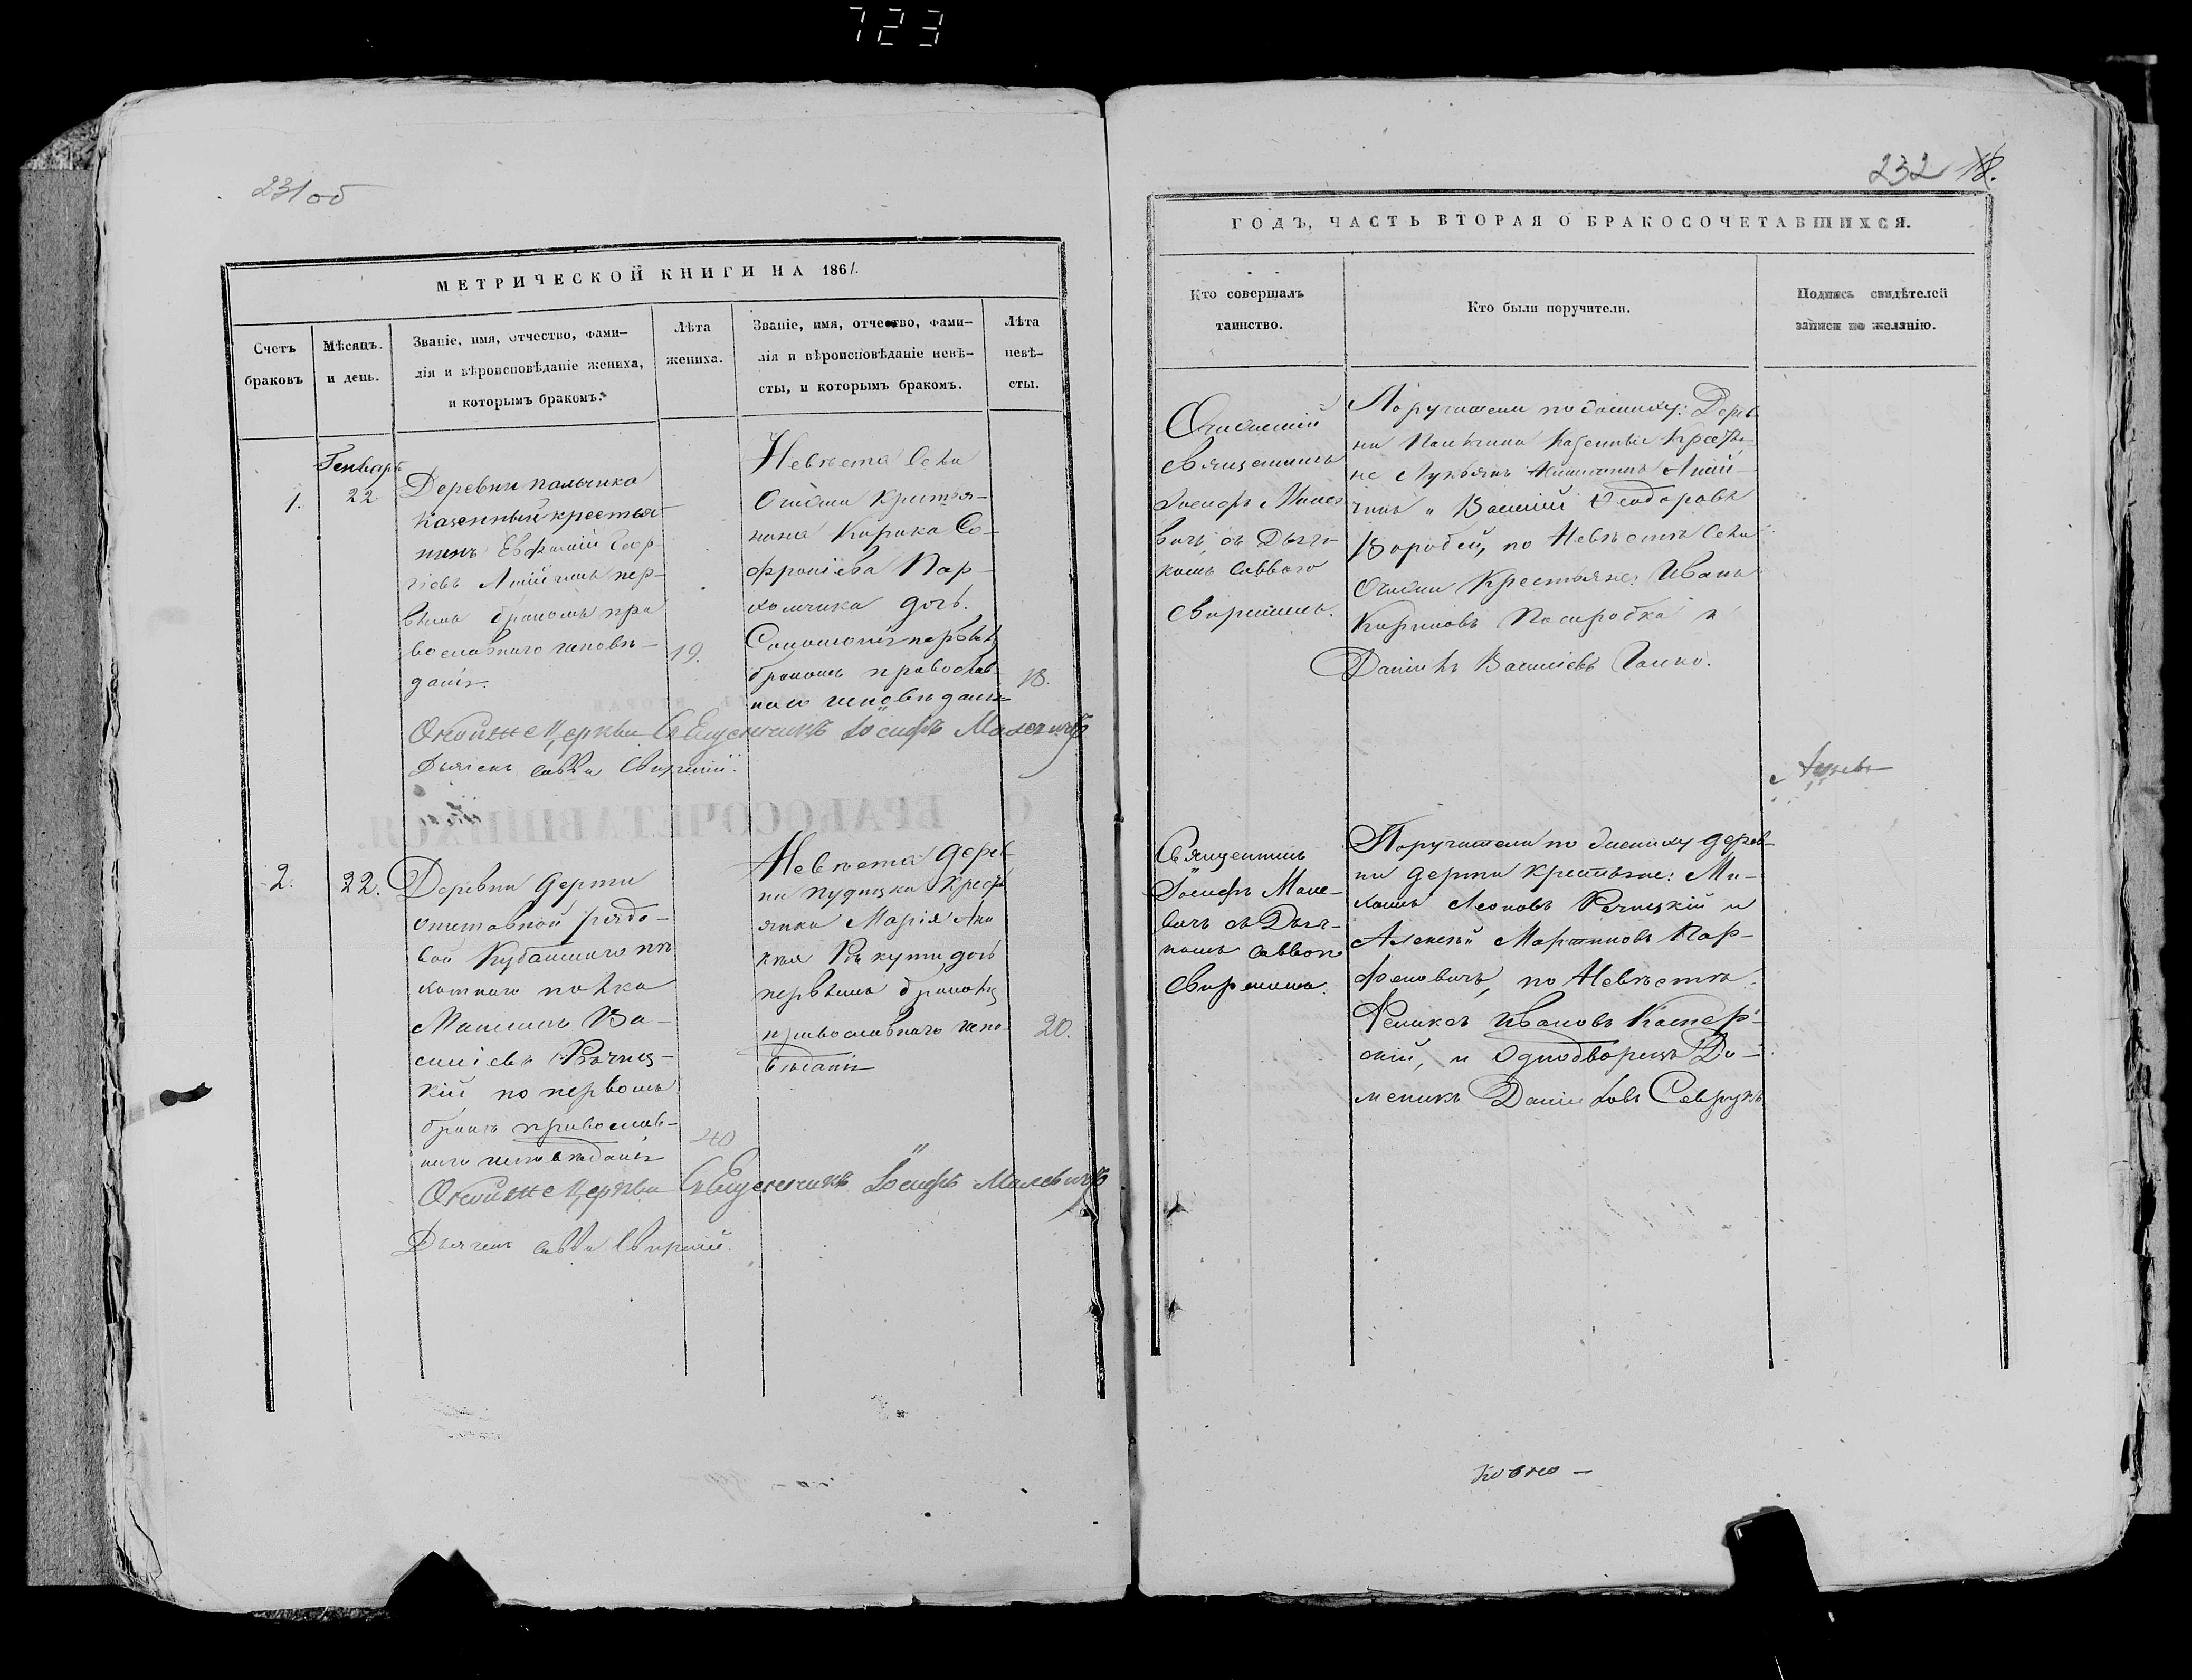 723
231 об
МЕТРИЧЕСКОЙ КНИГИ НА 1861.
Счетъ
браковъ
Мѣсяцъ.
и день.
Званіе, имя, отчество, фами–
лія и вѣроисповѣданіе жениха,
и которымъ бракомъ.
Лѣта
жениха.
Званіе, имя, отчество, фами–
лія и вѣроисповѣданіе невѣ–
сты, и которымъ бракомъ.
Лѣта
невѣ–
сты.
1.
Генварь
22
Деревни Пальчика
казенный крестья
нинъ Евфимій Геор–
гіевъ пер–
вымъ бракомъ пра
вославнаго исповѣ–
данія.
19.
Невѣста Села
крестья–
нина Кирика Со–
фроніева Пар–
хомчика дочь.
Соломонія первымъ
бракомъ православ–
наго исповѣданія
18.
Церкви Священникъ Іосифъ Малевичъ
Дьячекъ Савва Свирскій.
2.
22.
Деревни Дерти
отставной рядо–
вой Кубанскаго пѣ
хотнаго полка
Ва–
силіевъ Рѣчиц–
кій по первомъ
бракѣ православ–
наго исповѣданія
40
Невѣста дерев
ни Пудицка крест
янка Марія
дочь
первымъ бракомъ
православнаго испо–
вѣданія
20.
Церкви Священникъ Іосифъ Малевичъ
Дьячекъ Савва Свирскій.
232 18.
ГОДЪ, ЧАСТЬ ВТОРАЯ О БРАКОСОЧЕТАВШИХСЯ.
Кто совершалъ
таинство.
Кто были поручители.
Подпись свидѣтелей
записи по желанію.
священникъ
Іосифъ Мале
вичъ, съ Дьяч–
комъ Саввою
Свирскимъ.
Поручители по жениху: Дерев
ни Пальчика казенные крестья
не Лукьянъ
Василій Феодоровъ
Воробей, по Невѣстѣ Села
Крестьяне: Иванъ
Кириковъ и
Даніилъ Василіевъ
Священникъ
Іосифъ Мале–
вичъ съ Дьяч–
комъ Саввою
Свирскимъ.
Поручители по жениху дерев–
ни Дерти крестьяне: Ми–
хаилъ Леоновъ Речицкій и
Алексѣй Мартиновъ Пар–
феновичъ, по Невѣстѣ
Феликсъ Ивановъ
скій, и Однодворецъ До–
меникъ Даниловъ Саврукъ